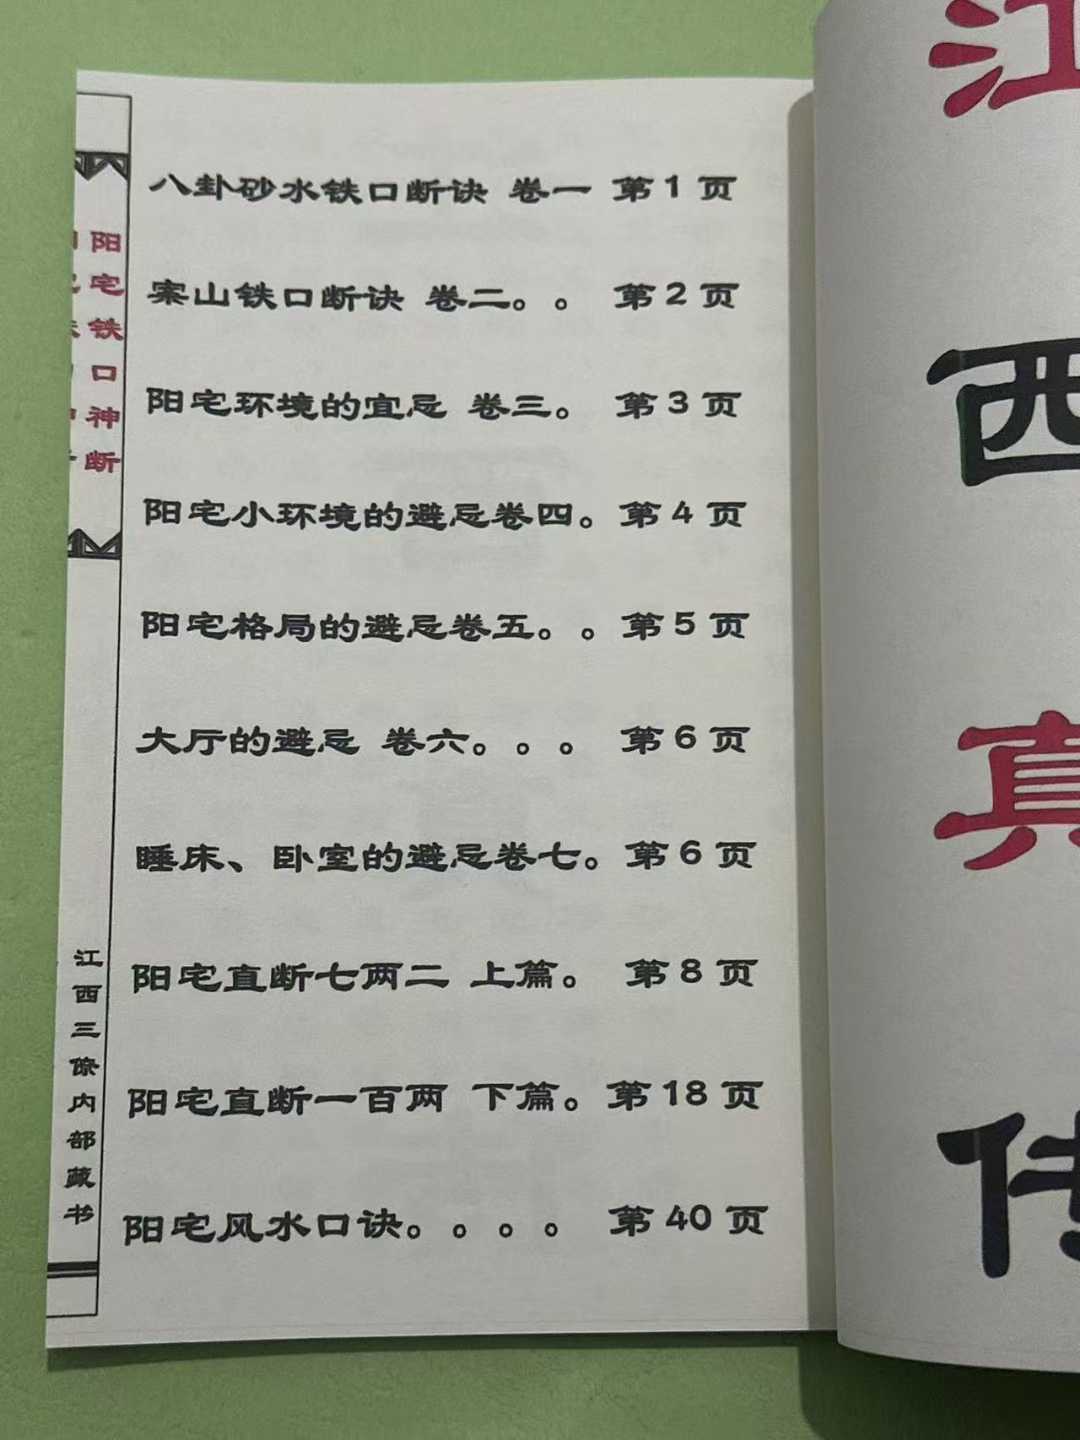 八卦砂水铁口断诀 卷一 第1页
案山铁口断诀 卷二。。 第2页
阳宅环境的宜忌 卷三。 第3页
阳宅小环境的避忌卷四。第4页
阳宅格局的避忌卷五。。第5页
大厅的避忌 卷六。。。 第6页
睡床、卧室的避忌卷七。第6页
阳宅直断七两二 上篇。 第8页
阳宅直断一百两 下篇。第18页
阳宅风水口诀。。。。 第40页
阳宅铁口神断
江西三僚内部藏书
江西真传